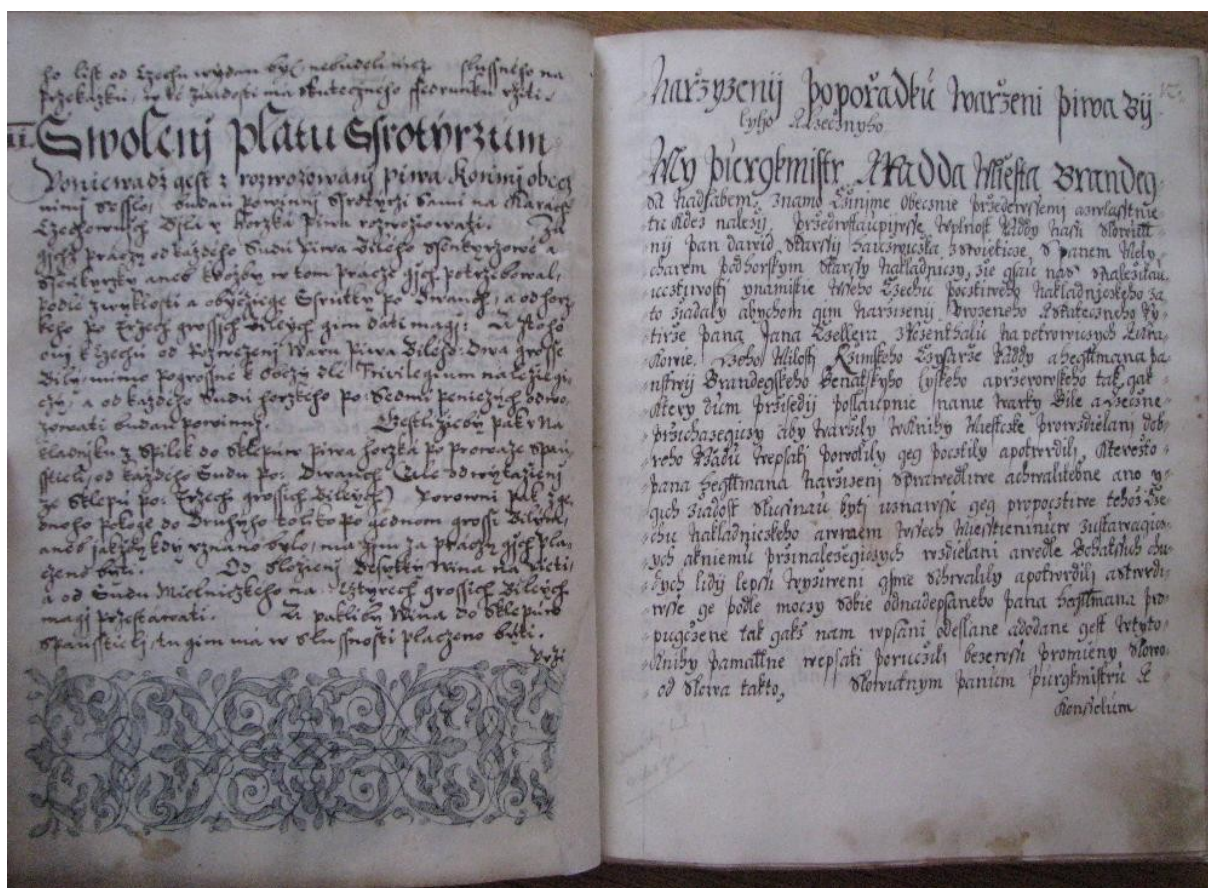 ho list od Czechu wydan byl, nebudeli miez slussneho na
przekazku, te zadosti ma skuteczného
II. Swolenj Platu Ssrotyrzum
Poniewadz gest z rozwozowanj piwa Konmi obecz
nimi sesslo, budau powinni Ssrotyrzi sami na Karach
Czechownich Bily y Horzká Piwa rozwozowati. Za
gichz praczy od každého Sudu Piwa Bileho
aneb kdožby w tom pracze gich potrzebowal,
podle zwyklosti a obyczege Ssrutky po Dwauch, a od horz
keho po Trzech grossich Bilych gim dati magj: A z toho
onj k Czechu od Rozwezenj Waru Piwa Bilého: Dwa grosse
Bily, mimo pogrossné k Obczy dle Privilegium nalezegi
czy, a od každého Sudu horzkeho po: Sedmi Peniezych odwo
zowati budau powinnj. Gestližieby pak v Na
kladnjku z Spilek do Sklepuw Piwa horzká po Prowaze span
sstieli, od každého Sudu po: Dwauch Gile od wytaženj
ze Sklepu po: Trzech grossich Bilych) Porownj pak z ge
dnoho pokoge do Druhyho toliko po gednom grossi Bilym,
aneb jakžby kdy uznano bylo, ma gim za praczy gich pla
czeno býti. Od slozienj Desytky Wina na
a od Sudu Mielniczkeho na Cztyrech grossich Bilych
magj przestawati. A paklibý Wina do Sklepuw
spausstieli, tu gim ma w slussnosti placzeno býti.
Narzyzenij poporádku warženi piwa Bij
lyho Arzecznyho
My purgkmistr Aradda Miesta Brandeg
sa nadlabem. Znamo Czinijme obecnie przedewssemi azwlasstnie
tu kdez naležy, przedstaupiwsse wplnost Raddy nassi Slowutt
nij pan dawid Starssij Hauzwiczka Spanem Mely
charem podhorskym Starssy Nakladniczy, zie gsau nas
ucztiwosti ynamistie wsseho Czechu pocztiweho Nakladniczkeho za
to žiadaly abychom gim Narzizeni Vrozeneho Astateczneho Ry
tirze pana Jana Czellera zRosenthalu na petrowiczych
kowie. Geho Milosti Rzimskeho Czysarze Raddy ahegttmana pa
nstwij Brandegskeho Benatskyho lyskeho aprzerowskeho tak gak
ktery dum przisedij poslaupnie nanie warky Bile arzeczne
przichazegiczy aby warzily wknihy Miestcke prowzdielani dob
reho Rzadu wepsati powolily geg poctily apotwrdili. Kterežto
pana hegttmana narzizeni sprawedliwe achwalitebne ano y
gich žiadost slussnau byti uznawsse geg propocztiwe tehož Cze
chu Nakladniczkeho awssem wssech Miesstieninuw zustawagicz
ych akniemu przinalezegiczych wzdielani awedle Bohatssich chu
dych lidij lepssi wyžiweni gsme schwalily apotwrdilj astwrdi
wsse ge podle moczy sobie odnadepsaneho pana hegttmana pro
pugczene tak gakž nam wepsani odeslane adodane gest wtyto
knihy pamattne wepsati poruczili bezewssi promieny slowo
od slowa takto, Slowutnym panum purgkmistru A
Konsselum